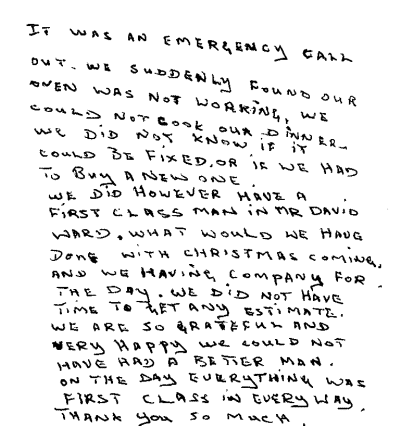 IT WAS AN EMERGENCY CALL
OUT. WE SUDDENLY FOUND OUR
OVEN WAS NOT WORKING, WE
COULD NOT COOK OUR DINNER.
WE DID NOT KNOW IF IT
COULD BE FIXED, OR IF WE HAD
TO BUY A NEW ONE.
WE DID HOWEVER HAVE A
FIRST CLASS MAN IN MR DAVID
WARD. WHAT WOULD WE HAVE
DONE WITH CHRISTMAS COMING,
AND WE HAVING COMPANY FOR
THE DAY. WE DID NOT HAVE
TIME TO GET ANY ESTIMATE.
WE ARE SO GRATEFUL AND
VERY HAPPY WE COULD NOT
HAVE HAD A BETTER MAN.
ON THE DAY EVERYTHING WAS
FIRST CLASS IN EVERY WAY.
THANK YOU SO MUCH.